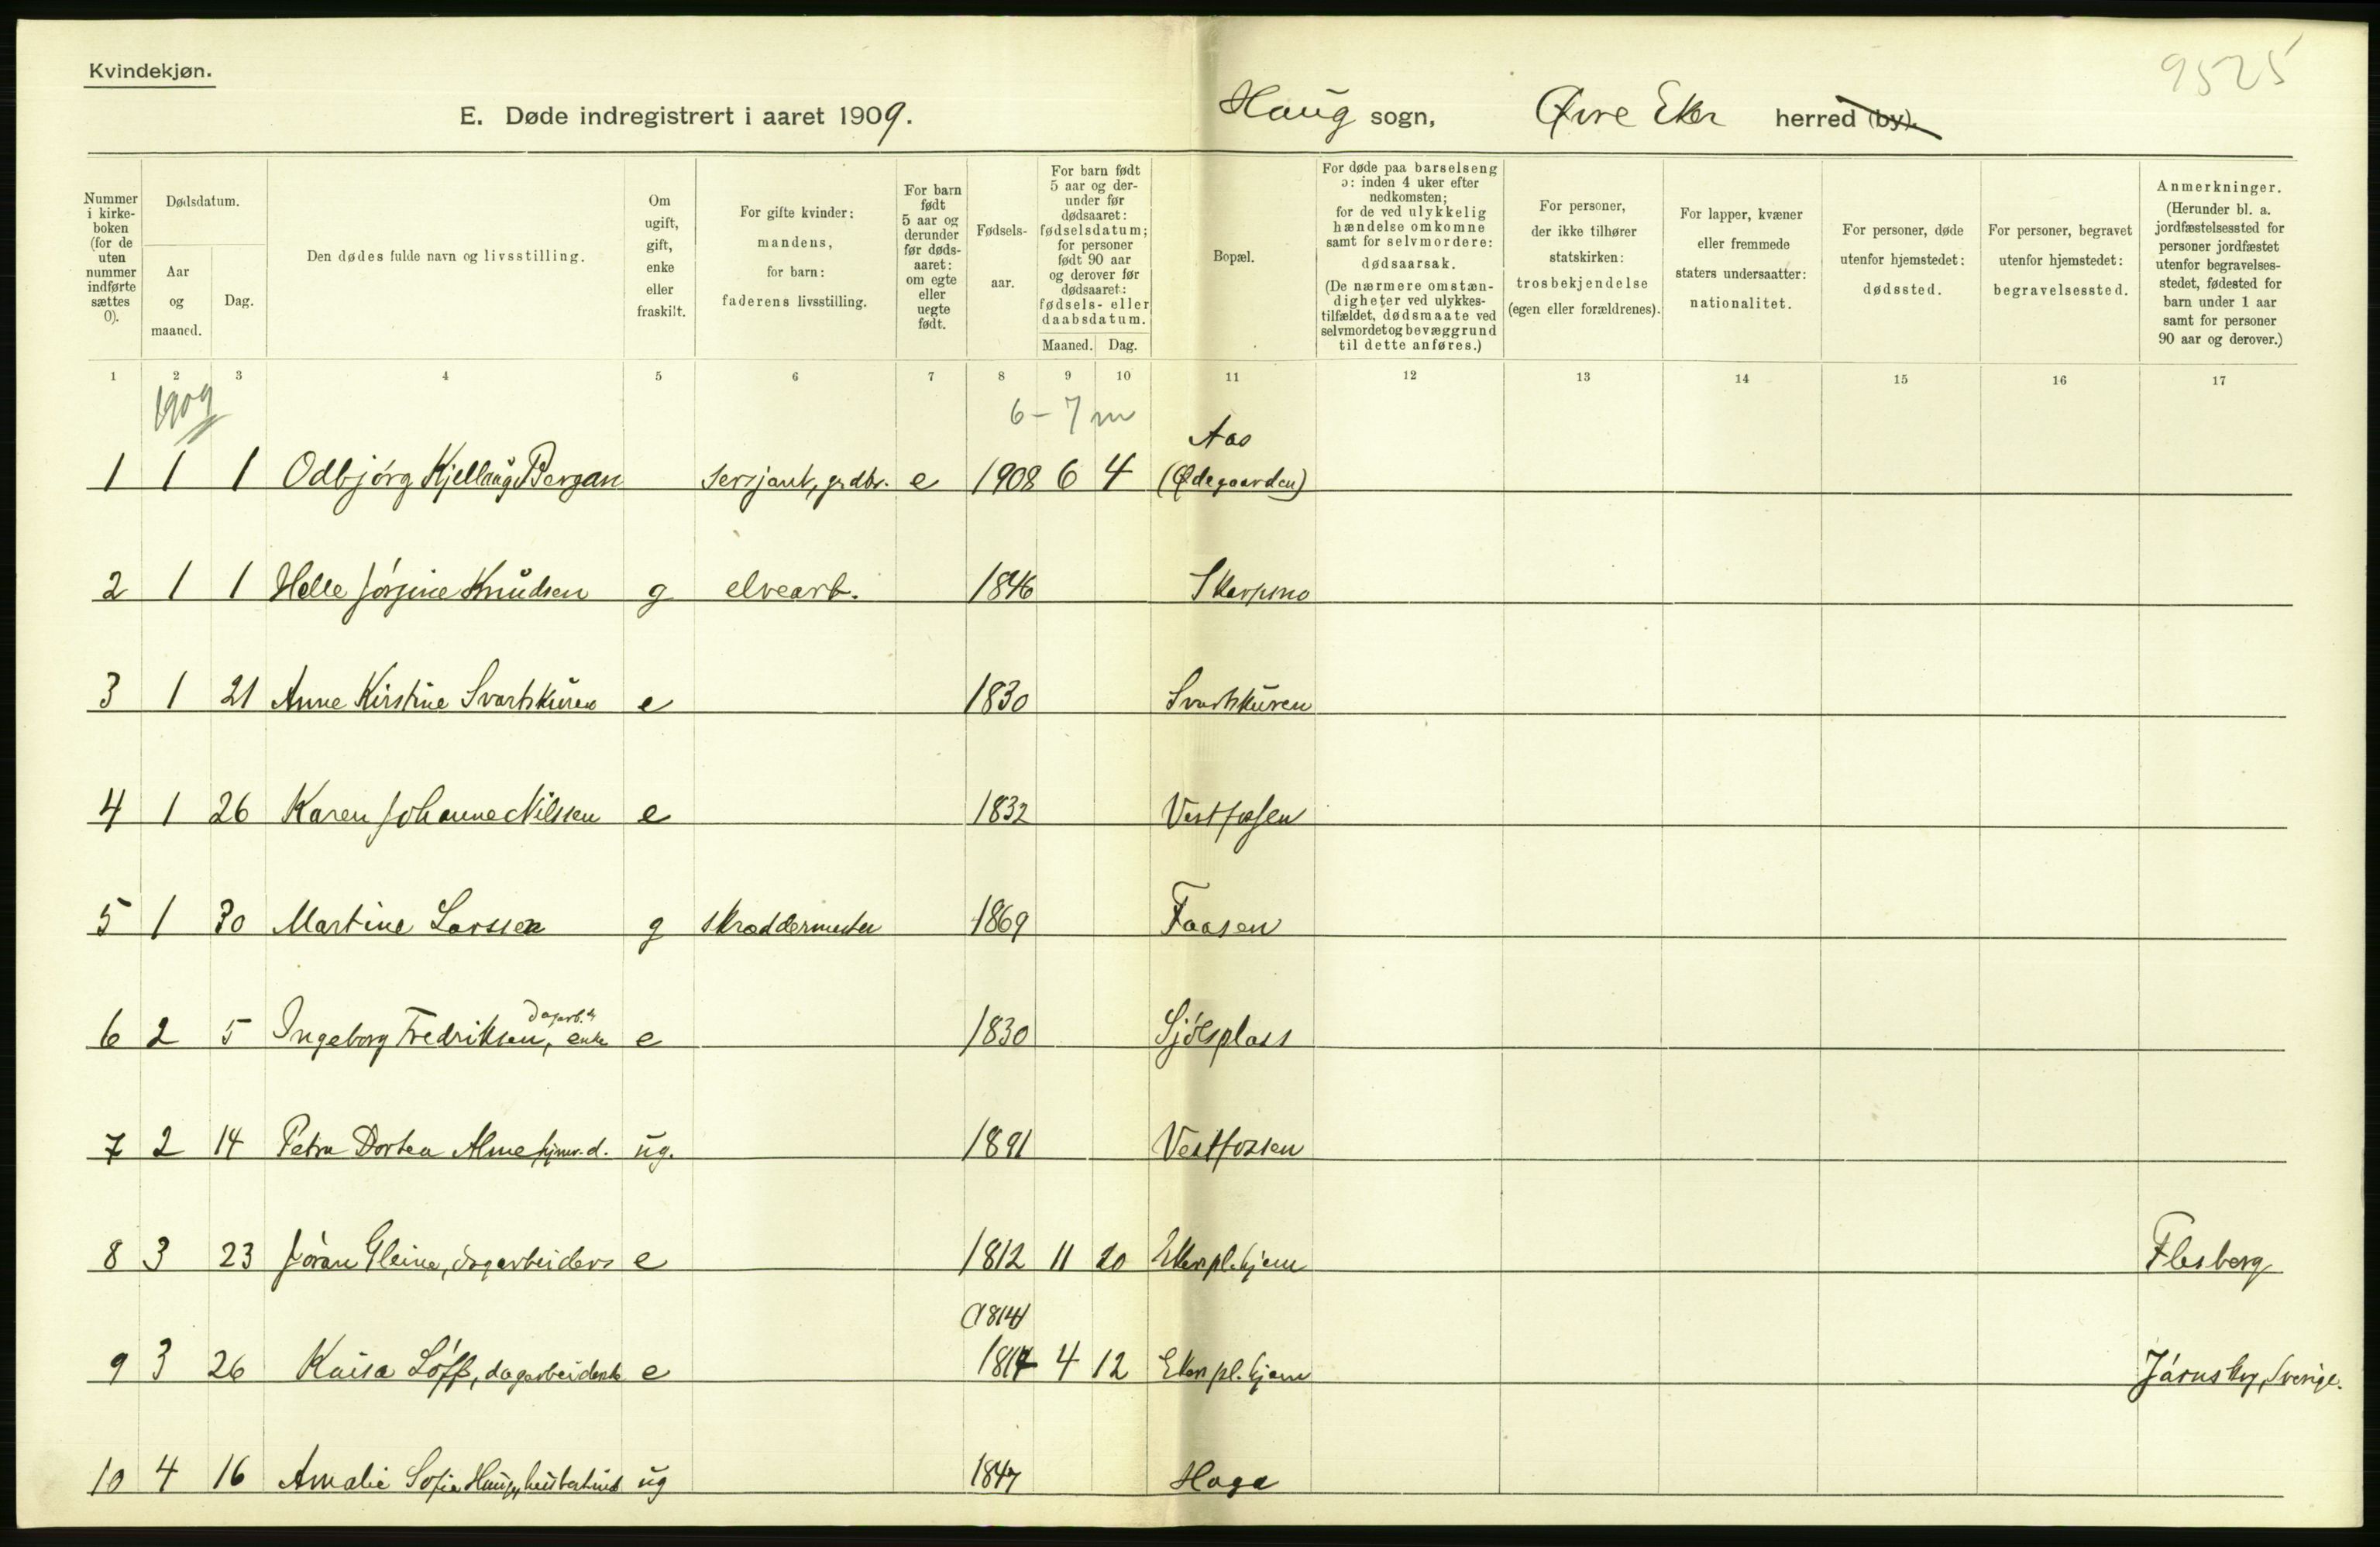 Kvindekjøn.
9525
E. Døde indregistrert i aaret 1909.
Haug sogn, Øvre Eker herred (by).
Nummer i kirke-boken (for de uten nummer indførte sættes 0).
Dødsdatum.
Aar og maaned.
Dag.
Den dødes fulde navn og livsstilling.
Om ugift, gift, enke eller fraskilt.
For gifte kvinder: mandens, for barn: faderens livsstilling.
For barn født 5 aar og derunder før døds-aaret: om egte eller uegte født.
Fødsels-aar.
For barn født 5 aar og der-under før dødsaaret: fødselsdatum; for personer født 90 aar og derover før dødsaaret: fødsels- eller daabsdatum.
Maaned. Dag.
Bopæl.
For døde paa barselseng ɔ: inden 4 uker efter nedkomsten; for de ved ulykkelig hændelse omkomne samt for selvmordere: dødsaarsak. (De nærmere omstæn-digheter ved ulykkes-tilfældet, dødsmaate ved selvmordet og bevæggrund til dette anføres.)
For personer, der ikke tilhører statskirken: trosbekjendelse (egen eller forældrenes).
For lapper, kvæner eller fremmede staters undersaatter: nationalitet.
For personer, døde utenfor hjemstedet: dødssted.
For personer, begravet utenfor hjemstedet: begravelsessted.
Anmerkninger. (Herunder bl. a. jordfæstelsessted for personer jordfæstet utenfor begravelses-stedet, fødested for barn under 1 aar samt for personer 90 aar og derover.)
1 2 3 4 5 6 7 8 9 10 11 12 13 14 15 16 17
1909
6-7 m
Aas
1 1 1 Odbjörg Kjellaug Bergan Sersjant, grdbr. e 1908 6 4 (Ødegaarden)
2 1 1 Helle Jörgine Knudsen g elvearb. 1846 Skarpmo
3 1 21 Anne Kirstine Svartskuren e 1830 Svartskuren
4 1 26 Karen Johanne Nilssen e 1832 Vestfossen
5 1 30 Martine Larssen g skræddermester 1869 Faasen
dagarb.
6 2 5 Ingeborg Fredriksen, enke e 1830 Sjölsplass
7 2 14 Petra Dortea Alme hjmv. d. ug. 1891 Vestfossen
8 3 23 Jöran Gleine, dagarbeiders e 1812 11 20 Ekers pl.hjem Flesberg
(1814)
9 3 26 Kaisa Löff, dagarbeidenke e 1814 4 12 Ekers pl.hjem Järnskog, Sverige.
10 4 16 Amalie Sofie Haug, husbestind ug 1847 Haga